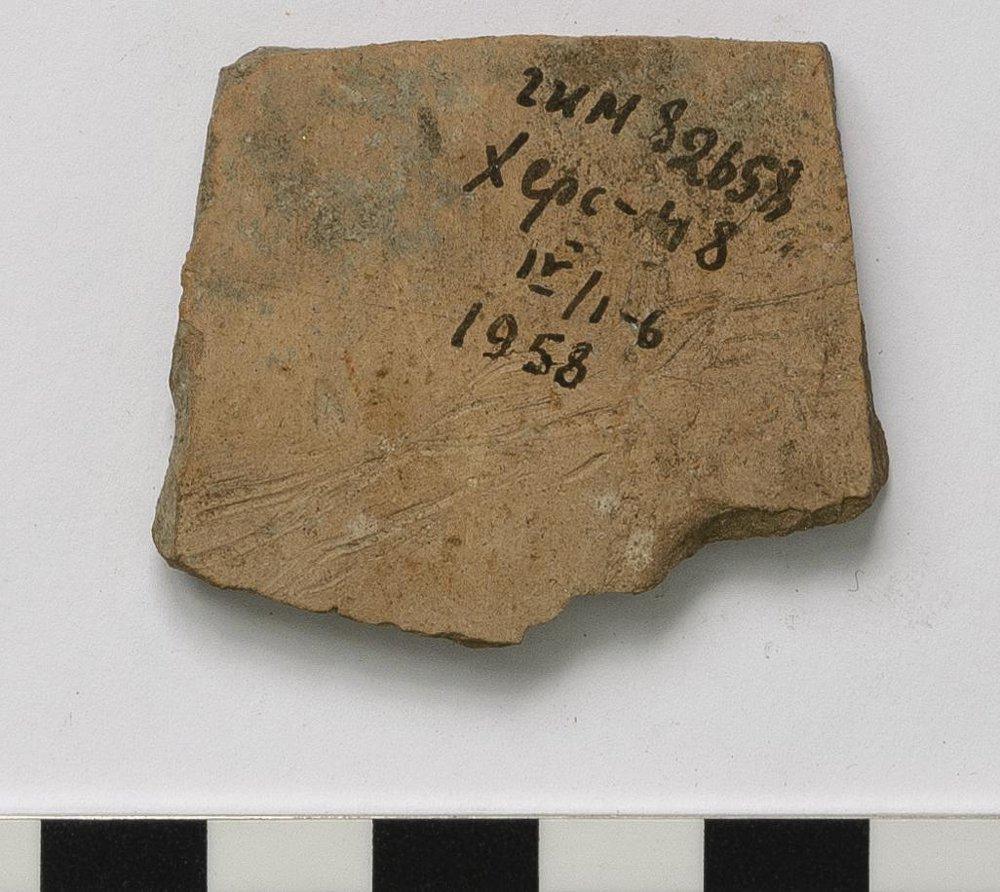 гим 82658
Херс-н 8
IV/1-6
1958